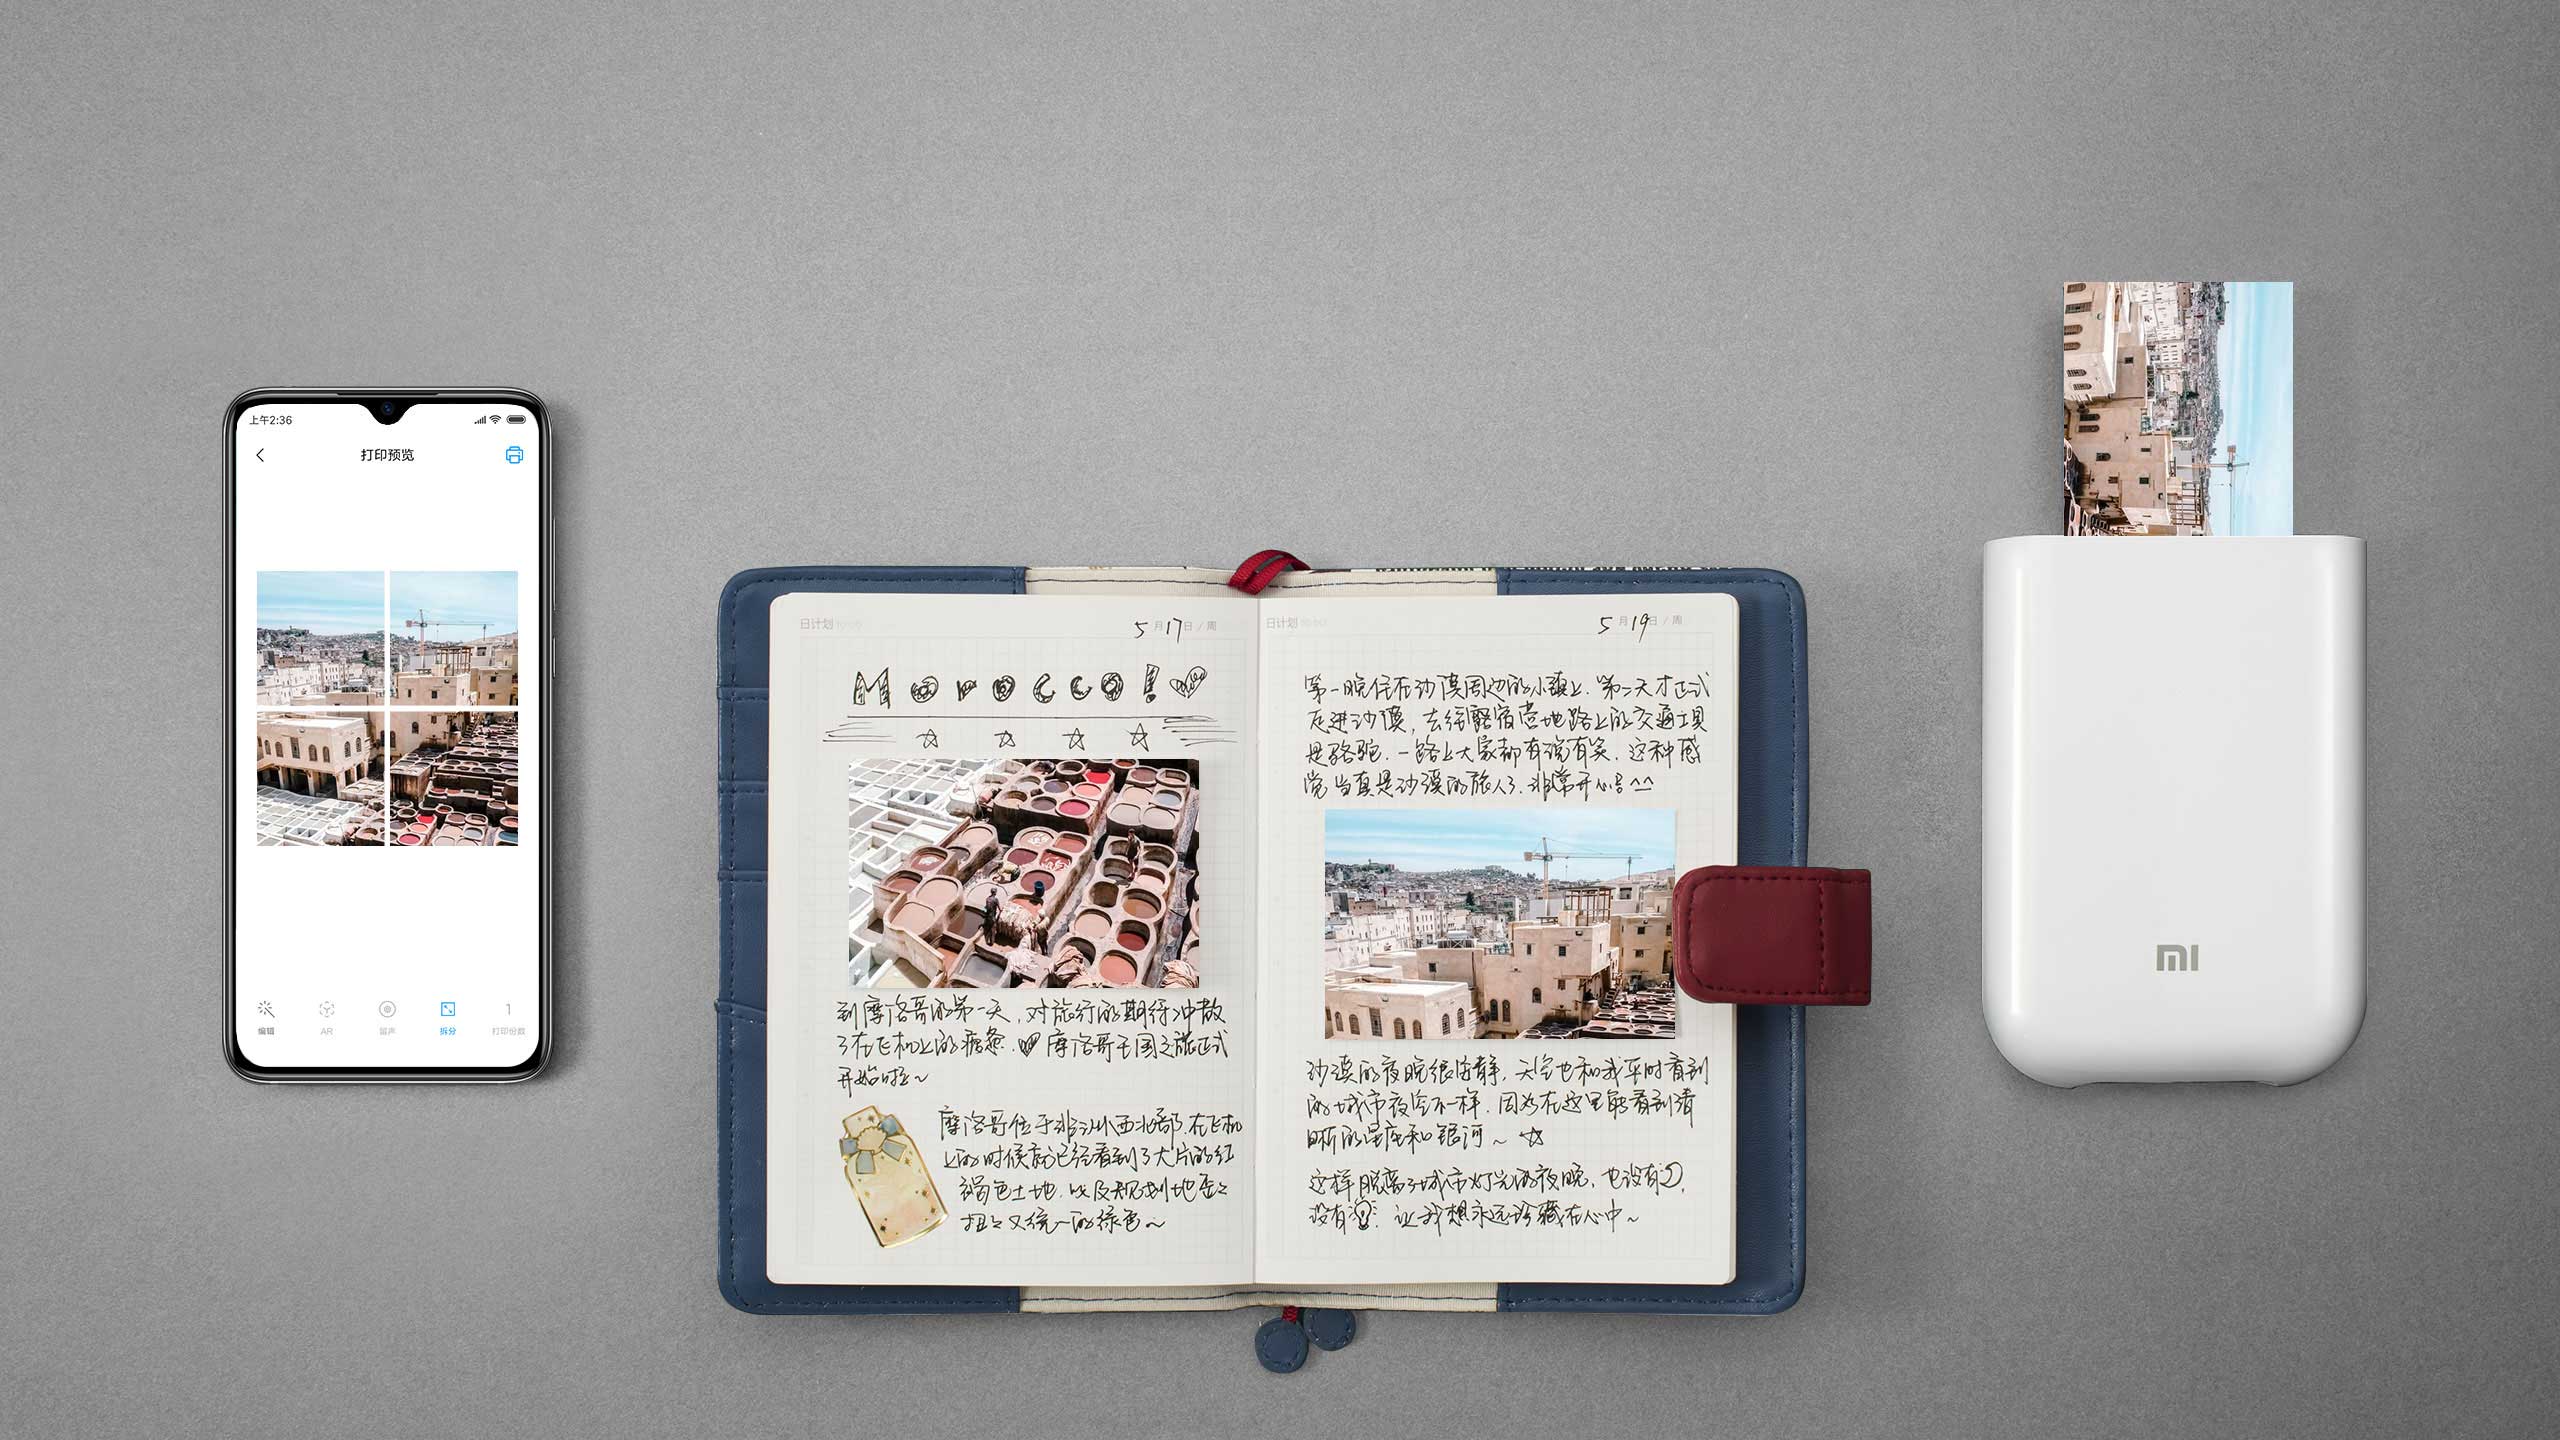 上午2:36
打印预览
编辑
AR
留声
拆分
1
打印份数
日计划
5月17日/周
Morocco!
到摩洛哥的第一天,对旅行的期待冲散
了在飞机上的疲惫.摩洛哥王国之旅正式
开始啦~
摩洛哥位于非洲西北部.在飞机
上的时候就已经看到了大片的红
褐色土地.以及规划地歪歪
扭扭又统一的绿色~
日计划
5月19日/周
第一晚住在沙漠周边的小镇上.第二天才正式
走进沙漠,去往露宿营地路上的交通工具
是骆驼.一路上大家都有说有笑.这种感
觉当真是沙漠的旅人了.非常开心^^
沙漠的夜晚很安静,天空也和我平时看到
的城市夜空不一样.因为在这里能看到清
晰的星座和银河~
这样脱离了城市灯光的夜晚,也没有
没有 让我想永远珍藏在心中~
MI